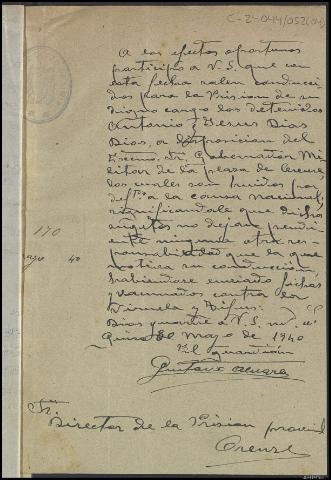 C-24044/052(01)
A los efectos oportunos
participo a V.S. que con
esta fecha salen conduci
dos para la Prision de su
digno cargo los detenidos
Antonio y Jesus Dias
Dias, a disposicion del
Excmo. Sr. Gobernador Mi
litar de la plaza de Orense,
los cuales son
a la causa nacional,
significandole que dichos
sugetos no dejan pendi
ente ninguna otra res
ponsabilidad que la que
motiva su conduccion,
habiendose enviado fichas
y vacunados contra la
Viruela y Tifus.
Dios guarde a V.S. m. a.
Mayo de 1940
El guardian
Gustavo
170
mayo 40
Sr.
Director de la Prision provincial
Orense